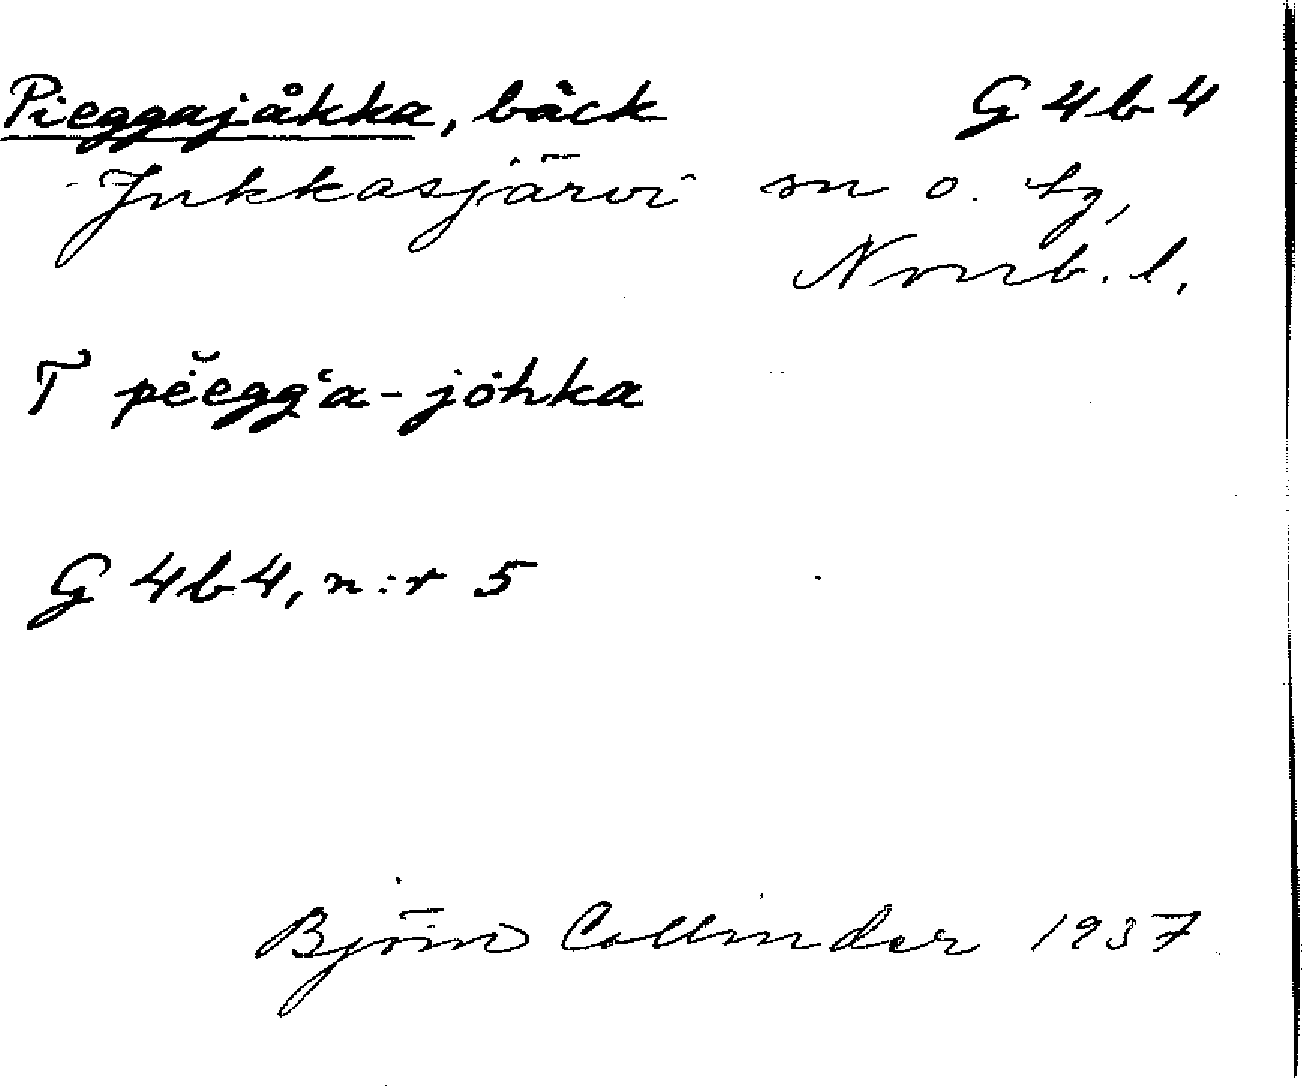 Pieggajåkka, bäck G 4 b 4
Jukkasjärvi sn o. tg,
Norrb. l.
T pĕegg‘a-jȯhka
G 4b4, n:r 5
Björn Collinder 1937